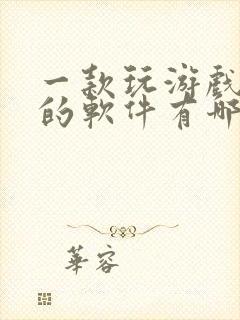 一款玩游戲
的軟件有哪
華容